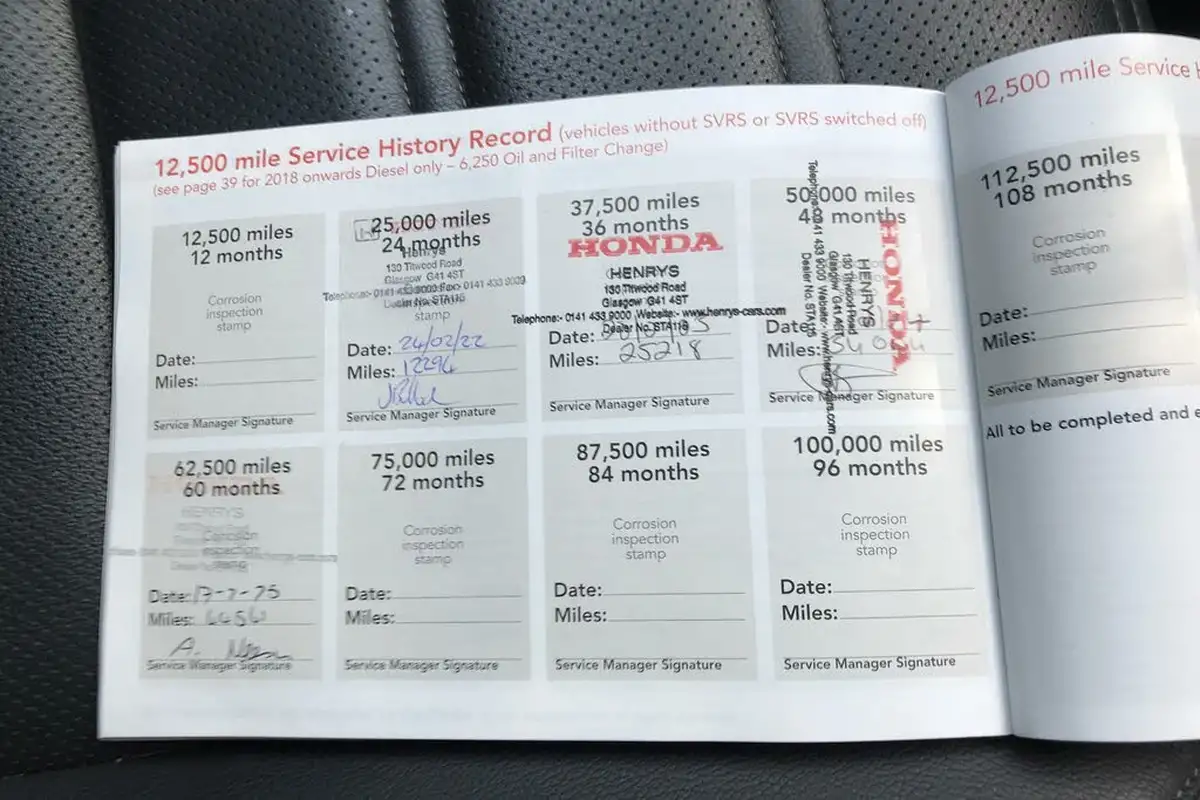 12,500 mile Service History Record (vehicles without SVRS or SVRS switched off)
(see page 39 for 2018 onwards Diesel only – 6,250 Oil and Filter Change)
12,500 miles
12 months
Corrosion
inspection
stamp
Date:
Miles:
Service Manager Signature
25,000 miles
24 months
Henrys
130 Titwood Road
Glasgow G41 4ST
Telephone:- 0141 433 9000 Fax:- 0141 433 9039
Dealer No. STA118
stamp
Date: 24/02/22
Miles: 12294
Service Manager Signature
37,500 miles
36 months
HONDA
HENRYS
130 Titwood Road
Glasgow G41 4ST
Telephone:- 0141 433 9000 Website:- www.henrys-cars.com
Dealer No. STA118
Date:
Miles: 25218
Service Manager Signature
50,000 miles
48 months
HONDA
HENRYS
130 Titwood Road
Glasgow G41 4ST
Telephone:- 0141 433 9000 Website:- www.henrys-cars.com
Dealer No. STA118
Date:
Miles:
Service Manager Signature
62,500 miles
60 months
HENRYS
Corrosion
inspection
Date:
Miles:
A.
Service Manager Signature
75,000 miles
72 months
Corrosion
inspection
stamp
Date:
Miles:
Service Manager Signature
87,500 miles
84 months
Corrosion
inspection
stamp
Date:
Miles:
Service Manager Signature
100,000 miles
96 months
Corrosion
inspection
stamp
Date:
Miles:
Service Manager Signature
12,500 mile Service
112,500 miles
108 months
Corrosion
inspection
stamp
Date:
Miles:
Service Manager Signature
All to be completed and